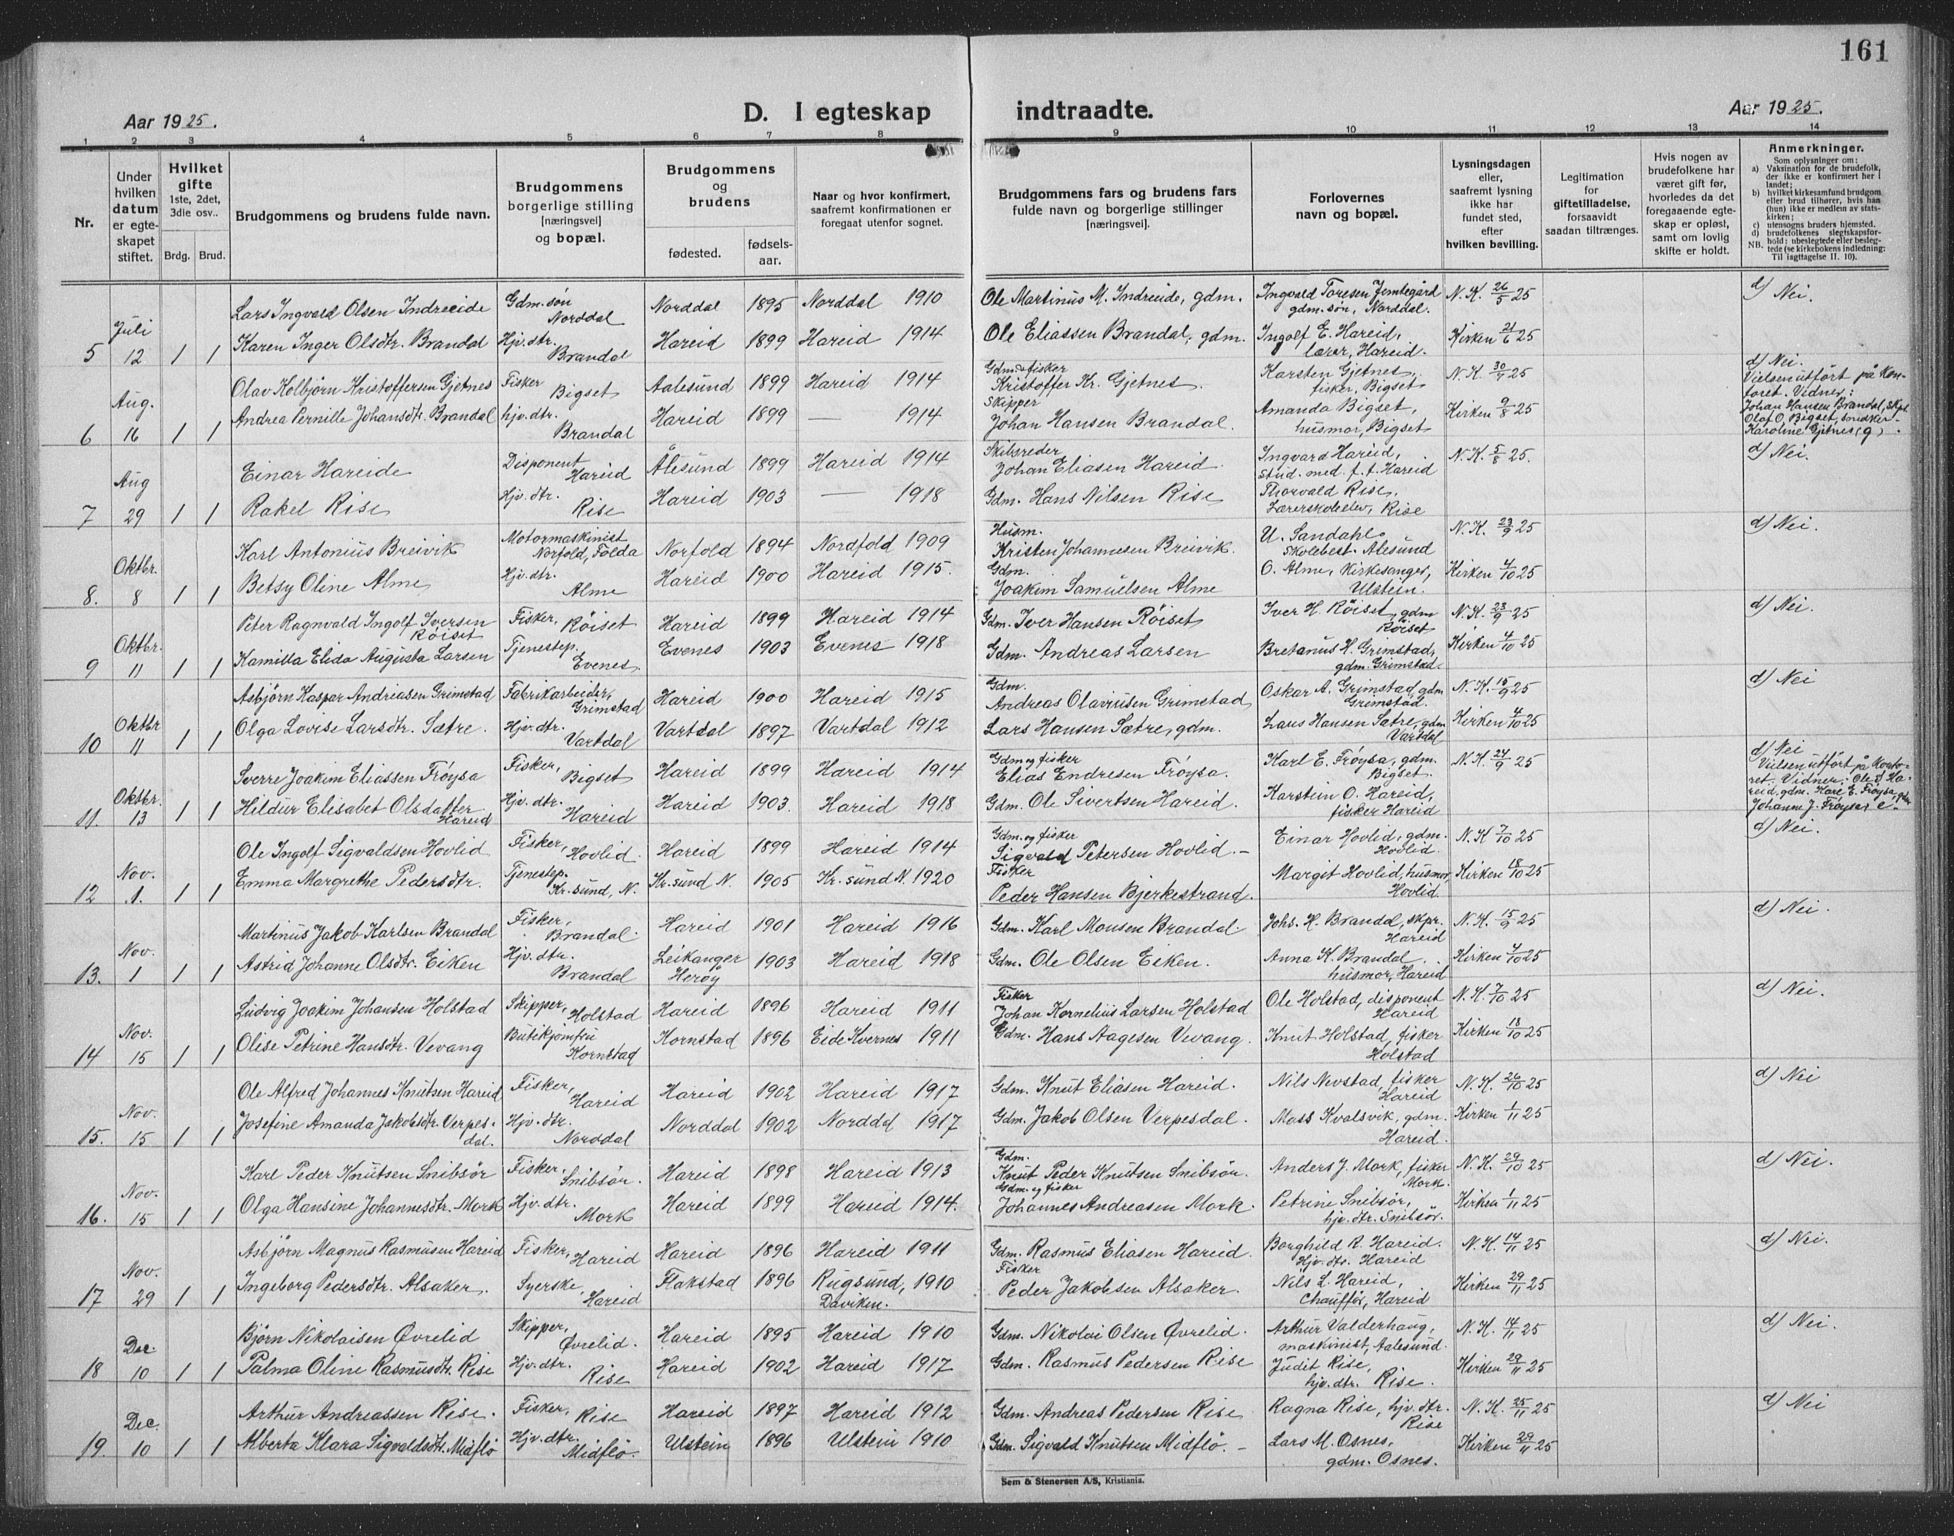 161
Aar 1925. D. I egteskap indtraadte. Aar 1925.
1 2 3 4 5 6 7 8 9 10 11 12 13 14
Nr.
Under hvilken datum er egteskapet stiftet.
Hvilket gifte 1ste, 2det, 3die osv..
Brdg. Brud.
Brudgommens og brudens fulde navn.
Brudgommens borgerlige stilling [næringsvei] og bopæl.
Brudgommens og brudens
fødested. fødselsaar.
Naar og hvor konfirmert, saafremt konfirmationen er foregaat utenfor sognet.
Brudgommens fars og brudens fars fulde navn og borgerlige stillinger [næringsvei]
Forlovernes navn og bopæl.
Lysningsdagen eller, saafremt lysning ikke har fundet sted, efter hvilken bevilling.
Legitimation for giftetilladelse, forsaavidt saadan tiltrænges.
Hvis nogen av brudefolkene har været gift før, hvorledes da det foregaaende egteskap er opløst, samt om lovlig skifte er holdt.
Anmerkninger.
Som oplysninger om:
a) Vaksination for de brudefolk, der ikke er konfirmert her i landet;
b) hvilket kirkesamfund brudgom eller brud tilhører, hvis han (hun) ikke er medlem av statskirken;
c) utensogns bruders hjemsted.
d) brudefolkenes slegtskapsforhold: ubeslegtede eller beslegtede (se kirkebokens indledning: Til iagttagelse II. 10).
NB.
Lars Ingvald Olsen Indreeide Gdm. søn Norddal Norddal 1895 Norddal 1910 Ole Martinus M. Indreide, gdm. Ingvald Toresen Jemtegård gdm. søn, Norddal. N.K. 26/5 25 d) Nei.
5 Juli 12 1 1 Karen Inger Olsdtr. Brandal Hjv. dtr. Brandal Hareid 1899 Hareid 1914 Ole Eliassen Brandal, gdm. Ingolf E. Hareid, lærer, Hareid. Kirken 21/6 25
Olav Kolbjørn Kristoffersen Gjetnes Fisker Bigset Aalesund 1899 Hareid 1914 Gdm. & fisker Kristoffer Kr. Gjetnes. Karsten Gjetnes, fisker, Bigset N.K. 30/7 25 d) Nei. Vielsen utført på Kontoret. Vidner:
6 Aug. 16 1 1 Andrea Pernille Johansdtr. Brandal hjv. dtr. Brandal Hareid 1899 — 1914 Skipper Johan Hansen Brandal. Amanda Bigset, husmor, Bigset Kirken 9/8 25 Johan Hansen Brandal, skpr. Olaf O. Bigset, snidker Karoline Gjetnes (g).
Einar Hareide Disponent Hareid Ålesund 1899 Hareid 1914 Skibsreder Johan Eliasen Hareid. Ingvard Hareid, stud. med. f. t. Hareid N.K. 5/8 25. d) Nei.
7 Aug 29 1 1 Rakel Rise Hjv. dtr. Rise Hareid 1903 — 1918 Gdm. Hans Nilsen Rise Thorvald Rise. Lærerskoleelev, Rise
Karl Antonius Breivik Motormaskinist Norfold, Folda Norfold 1894 Nordfold 1909 Husm. Kristen Johannesen Breivik. U. Sandahl, skolebest. Alesund N.K. 23/9 25 d) Nei.
8. Oktbr. 8 1 1 Betsy Oline Alme Hjv. dtr. Alme Hareid 1900 Hareid 1915. Gdm. Joakim Samuelsen Alme O. Alme, Kirkesanger, Ulstein. Kirken 4/10 25
Peter Ragnvald Ingolf Iversen Röiset Fisker, Röiset Hareid 1899 Hareid 1914 Gdm. Iver Hansen Röiset Iver H. Röiset, gdm Röiset N.K. 23/9 25 d) Nei.
9 Oktbr. 11 1 1 Kamilla Elida Augusta Larsen Tjenestep. Evenes Evenes 1903 Evenes 1918 Gdm. Andreas Larsen Bretanus H. Grimstad, gdm. Grimstad. Kirken 4/10 25
Asbjörn Kaspar Andreasen Grimstad Fabrikarbeider, Grimstad Hareid 1900 Hareid 1915 Gdm. Andreas Olaviusen Grimstad Oskar A. Grimstad, gdm Grimstad. N.K. 15/9 25 d) Nei
10 Oktbr 11 1 1 Olga Lovise Larsdtr. Sætre. Hjv. dtr. Vartdal Vartdal 1897 Vartdal 1912 Lars Hansen Sætre, gdm. Laus Hansen Sætre, gdm Vartdal Kirken 4/10 25
Sverre Joakim Eliassen Fröysa Fisker, Bigset Hareid 1899 Hareid 1914 Gdm og fisker Elias Endresen Fröysa. Karl E. Fröysa, gdm. Bigset. N.K. 24/9 25 d) Nei Vielsen utført på Kontoret. Vidner: Ole S. Hareid, gdm.
11. Oktbr. 13 1 1 Hildur Elisabet Olsdatter Hareid Hjv. dtr. Hareid Hareid 1903. Hareid 1918 Gdm. Ole Sivertsen Hareid. Karstein O. Hareid, fisker Hareid Kare E. Fröysa, gdm Johanne J. Fröysa, e.
Ole Ingolf Sigvaldsen Hovlid Fisker, Hovlid. Hareid 1899 Hareid 1914 Gdm. og fisker Sigvald Petersen Hovlid. Einar Hovlid, gdm. Hovlid. N.K. 7/10 25 d) Nei.
12 Nov. 1. 1 1 Emma Margrethe Pedersdtr. Tjenestep. Kr.sund, N. Kr.sund N. 1905 Kr.sund N. 1920 Fisker Peder Hansen Bjerkestrand. Margit Hovlid, husmor, Hovlid. Kirken 18/10 25
Martinus Jakob Karlsen Brandal Fisker, Brandal. Hareid 1901 Hareid 1916 Gdm. Karl Monsen Brandal Johs. H. Brandal, skpr. Hareid N.K. 15/9 25 d) Nei.
13. Nov. 1 1 1 Astrid Johanne Olsdtr. Eiken Hjv. dtr. Brandal Leikanger Heröy 1903 Hareid 1918 Gdm. Ole Olsen Eiken. Anna K. Brandal. husmor, Hareid Kirken 4/10 25
Ludvig Joakim Johansen Holstad Skipper, Holstad Hareid 1896 Hareid 1911 Fisker Johan Kornelius Larsen Holstad Ole Holstad, disponent Hareid N.K. 7/10 25 d) Nei.
14 Nov. 15 1 1 Olise Petrine Hansdtr. Vevang Butikjomfru Kornstad Kornstad 1896 Eide Kvernes 1911 Gdm. Hans Aagesen Vevang. Knut Holstad, fisker Holstad Kirken 18/10 25
Ole Alfred Johannes Knutsen Hareid Fisker, Hareid Hareid 1902 Hareid 1917 Gdm. Knut Eliasen Hareid. Nils Nevstad, fisker Hareid N.K. 26/10 25 d) Nei
15. Nov. 15 1 1 Josefine Amanda Jakobsdtr. Verpesdal. Hjv. dtr. Norddal Norddal 1902 Norddal 1917 Gdm. Jakob Olsen Verpesdal. Mass Kvalsvik, gdm. Hareid. Kirken 1/11 25
Karl Peder Knutsen Snibsör Fisker, Snibsör. Hareid 1898 Hareid 1913 Gdm. Knut Peder Knutsen Snibsör. Anders J. Mork, fisker Mork. N.K. 29/10 25 d) Nei.
16. Nov. 15 1 1 Olga Hansine Johannesdtr. Mork Hjv. dtr. Mork Hareid 1899 Hareid 1914. Gdm. og fisker Johannes Andreasen Mork. Petrine Snibsör, hjv. dtr. Snibsör. Kirken 1/11 25
Asbjörn Magnus Rasmusen Hareid Fisker, Hareid Hareid 1896 Hareid 1911 Gdm. Rasmus Eliasen Hareid. Borghild R. Hareid. Hjv. dtr. Hareid N.K. 14/11 25 d) Nei.
17 Nov. 29 1 1 Ingeborg Pedersdtr. Alsaker. Syerske, Hareid Flakstad 1896 Rugsund, Daviken. 1910 Fisker Peder Jakobsen Alsaker. Nils L. Hareid, Chauffør, Hareid Kirken 29/11 25
Björn Nikolaisen Øvrelid Skipper, Øvrelid. Hareid 1895 Hareid 1910 Gdm. Nikolai Olsen Øvrelid. Arthur Valderhaug, maskinist, Aalesund. N.K. 14/11 25 d) Nei.
18 Dec. 10 1 1 Palma Oline Rasmusdtr. Rise Hjv. dtr. Rise Hareid 1902 Hareid 1917 Gdm. Rasmus Pedersen Rise Judit Rise, hjv. dtr. Rise. Kirken 29/11 25
Arthur Andreassen Rise. Fisker, Rise Hareid 1897 Hareid 1912 Gdm. Andreas Pedersen Rise Ragna Rise, hjv. dtr. Rise N.K. 25/11 25 d) Nei
19. Dec. 10 1 1 Alberta Klara Sigvaldsdtr. Midflö Hjv. dtr. Midflö. Ulstein 1896 Ulstein 1910 Gdm. Sigvald Knutsen Midflö. Lars M. Osnes, gdm. Osnes. Kirken 29/11 25
Sem & Stenersen A/S, Kristiania.